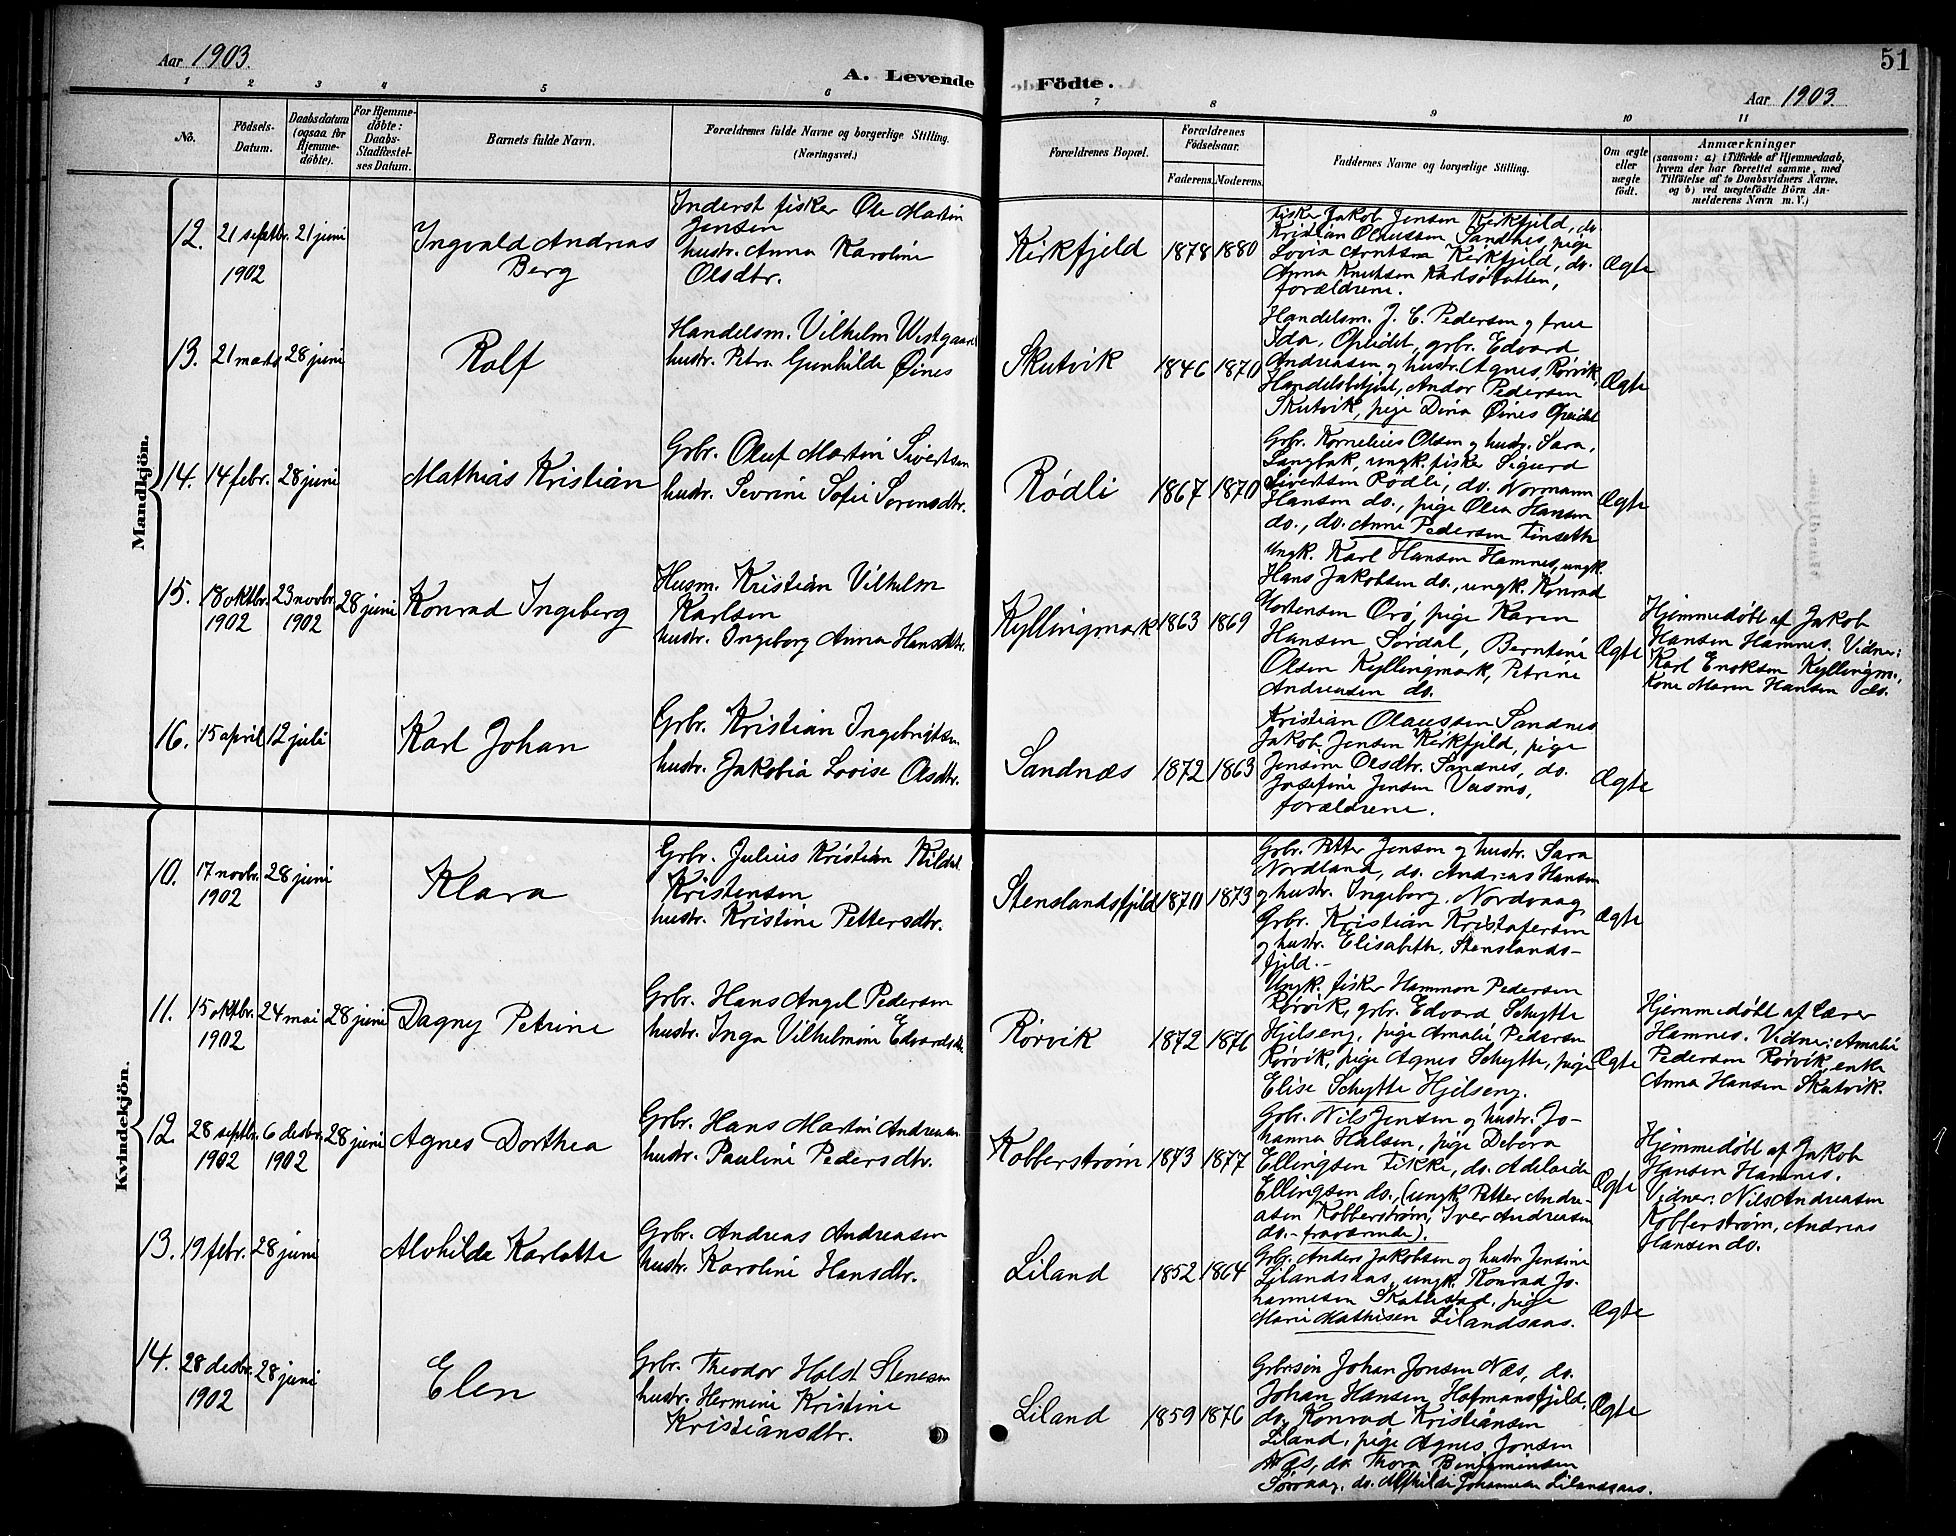 Aar 1903.
A. Levende Födte.
51
Aar 1903.
1 2 3 4 5 6 7 8 9 10 11
No.
Födsels-
Datum.
Daabsdatum
(ogsaa for
Hjemme-
döbte).
For Hjemme-
döbte:
Daabs-
Stadfæstel-
ses Datum.
Barnets fulde Navn.
Forældrenes fulde Navne og borgerlige Stilling.
(Næringsvei.)
Forældrenes Bopæl.
Forældrenes
Födselsaar.
Faderens. Moderens.
Faddernes Navne og borgerlige Stilling.
Om ægte
eller
uægte
födt.
Anmærkninger
(saasom: a) i Tilfælde af Hjemmedaab,
hvem der har forrettet samme, med
Tilföielse af to Daabsvidners Navne.
og b) ved uægtefödte Börn An-
melderens Navn m. V.)
Mandkjön.
12. 21 septbr. 21 juni
1902
Ingvald Andreas
Berg
Inderst fisker Ole Martin
Jensen
hustr. Anna Karoline
Olsdtr.
Kirkfjeld 1878 1880
fisker Jakob Jensen Kirkfjeld, do.
Kristian Olaussen Sandnes, pige
Lovia Arntsen Kirkfjeld, do.
Anna Knutsen
forældrene.
Ægte
13. 21 marts 28 juni
Rolf
Handelsm. Vilhelm Westgaard
hustr. Petra Gunhilde Øines
Skutvik 1846 1870
Handelsm. J. C. Pedersen og frue
Ida, Opeidet, grbr. Edvard
Andreasen og hustr. Agnes, Rørvik,
Handelsbetjent, Andor Pedersen
Skutvik, pige Dina Øines Opeidet
Ægte
14. 14 febr. 28 juni
Mathias Kristian
Grbr. Oluf Martin Sivertsen
hustr. Sevrine Sofie Sørensdtr.
Rødli 1867 1870
Grbr. Kornelius Olsen og hustr. Sara,
Langbak, ungk. fisker Sigurd
Sivertsen Rødli, do. Normann
Hansen do., pige Olea Hansen
do., do. Anne Pedersen Finseth
Ægte
15. 18 oktbr. 23 novbr. 28 juni
1902 1902
Konrad Ingeberg
Husm. Kristian Vilhelm
Karlsen
hustr. Ingeborg Anna Hansdtr.
Kyllingmark 1863 1869
Ungk. Karl Hansen Hamnes, ungk.
Hans Jakobsen do., ungk. Konrad
Mortensen Orø, pige Karen
Hansen Sørdal, Berntine
Olsen Kyllingmark, Petrine
Andreasen do.
Ægte
Hjemmedøbt af Jakob
Hansen Hamnes. Vidner:
Karl Enoksen Kyllingm.,
Kone Maren Hansen do.
16. 15 april 12 juli
Karl Johan
Grbr. Kristian Ingebrigtsen
hustr. Jakobia Lovise Olsdtr.
Sandnæs 1872 1863
Kristian Olaussen Sandnes
Jakob Jensen Kirkfjeld, pige
Jensine Olsdtr. Sandnes, do.
Josefine Jensen
forældrene.
Ægte
Kvindekjön.
10. 17 novbr. 28 juni
1902
Klara
Grbr. Julius Kristian Kildal
Kristensen
hustr. Kristine Pettersdtr.
Stenslandsfjeld 1870 1873
Grbr. Petter Jensen og hustr. Sara
Nordland, do. Andreas Hansen
og hustr. Ingeborg, Nordvaag,
Grbr. Kristian Kristofersen
og hustr. Elisabeth, Stenslands-
fjeld.-
Ægte
11. 15 oktbr. 24 mai 28 juni
1902
Dagny Petrine
Grbr. Hans Angel Pedersen
hustr. Inga Vilhelmine Edvardsdtr.
Rørvik 1872 1876
Ungk. fisker Hammon Pedersen
Rørvik, grbr. Edvard Schytte
Hjelseng, pige Amalie Pedersen
Rørvik, pige Agnes Schytte, pige
Elise Schytte Hjelseng.
Ægte
Hjemmedøbt af Lærer
Hamnes. Vidner: Amalie
Pedersen Rørvik, enke
Anna Hansen Skutvik.
12. 28 septbr. 6 desbr. 28 juni
1902 1902
Agnes Dorthea
Grbr. Hans Martin Andreasen
hustr. Pauline Pedersdtr.
Kobberstrøm 1873 1877
Grbr. Nils Jensen og hustr. Jo-
hanna Halsen, pige Debora
Ellingsen Fikke, do. Adelaide
Ellingsen do., (ungk. Petter Andre-
asen Kobberstrøm, Iver Andreasen
do. - fraværende).
Ægte
Hjemmedøbt af Jakob
Hansen Hamnes.
Vidner: Nils Andreasen
Kobberstrøm, Andreas
Hansen do.
13. 19 febr. 28 juni
Alvhilde Karlotte
Grbr. Andreas Andreasen
hustr. Karoline Hansdtr.
Liland 1852 1864
Grbr. Anders Jakobsen og hustr. Jensine
Lilandsaas, ungk. Konrad Jo-
hannesen Skattestad, pige
Marie Mathisen Lilandsaas.
Ægte
14. 28 desbr. 28 juni
1902
Elen
Grbr. Theodor Holst Stenesen
hustr. Hermine Kristine
Kristiansdtr.
Liland 1859 1876
Grbrsøn Johan Jonsen Næs, do.
Johan Hansen Hofmansfjeld,
do. Konrad Kristiansen
Liland, pige Agnes Jonsen
Næs, do. Thora Benjaminsen
Sørvaag, do. Alfhilde Johannesen Lilandsaas.
Ægte